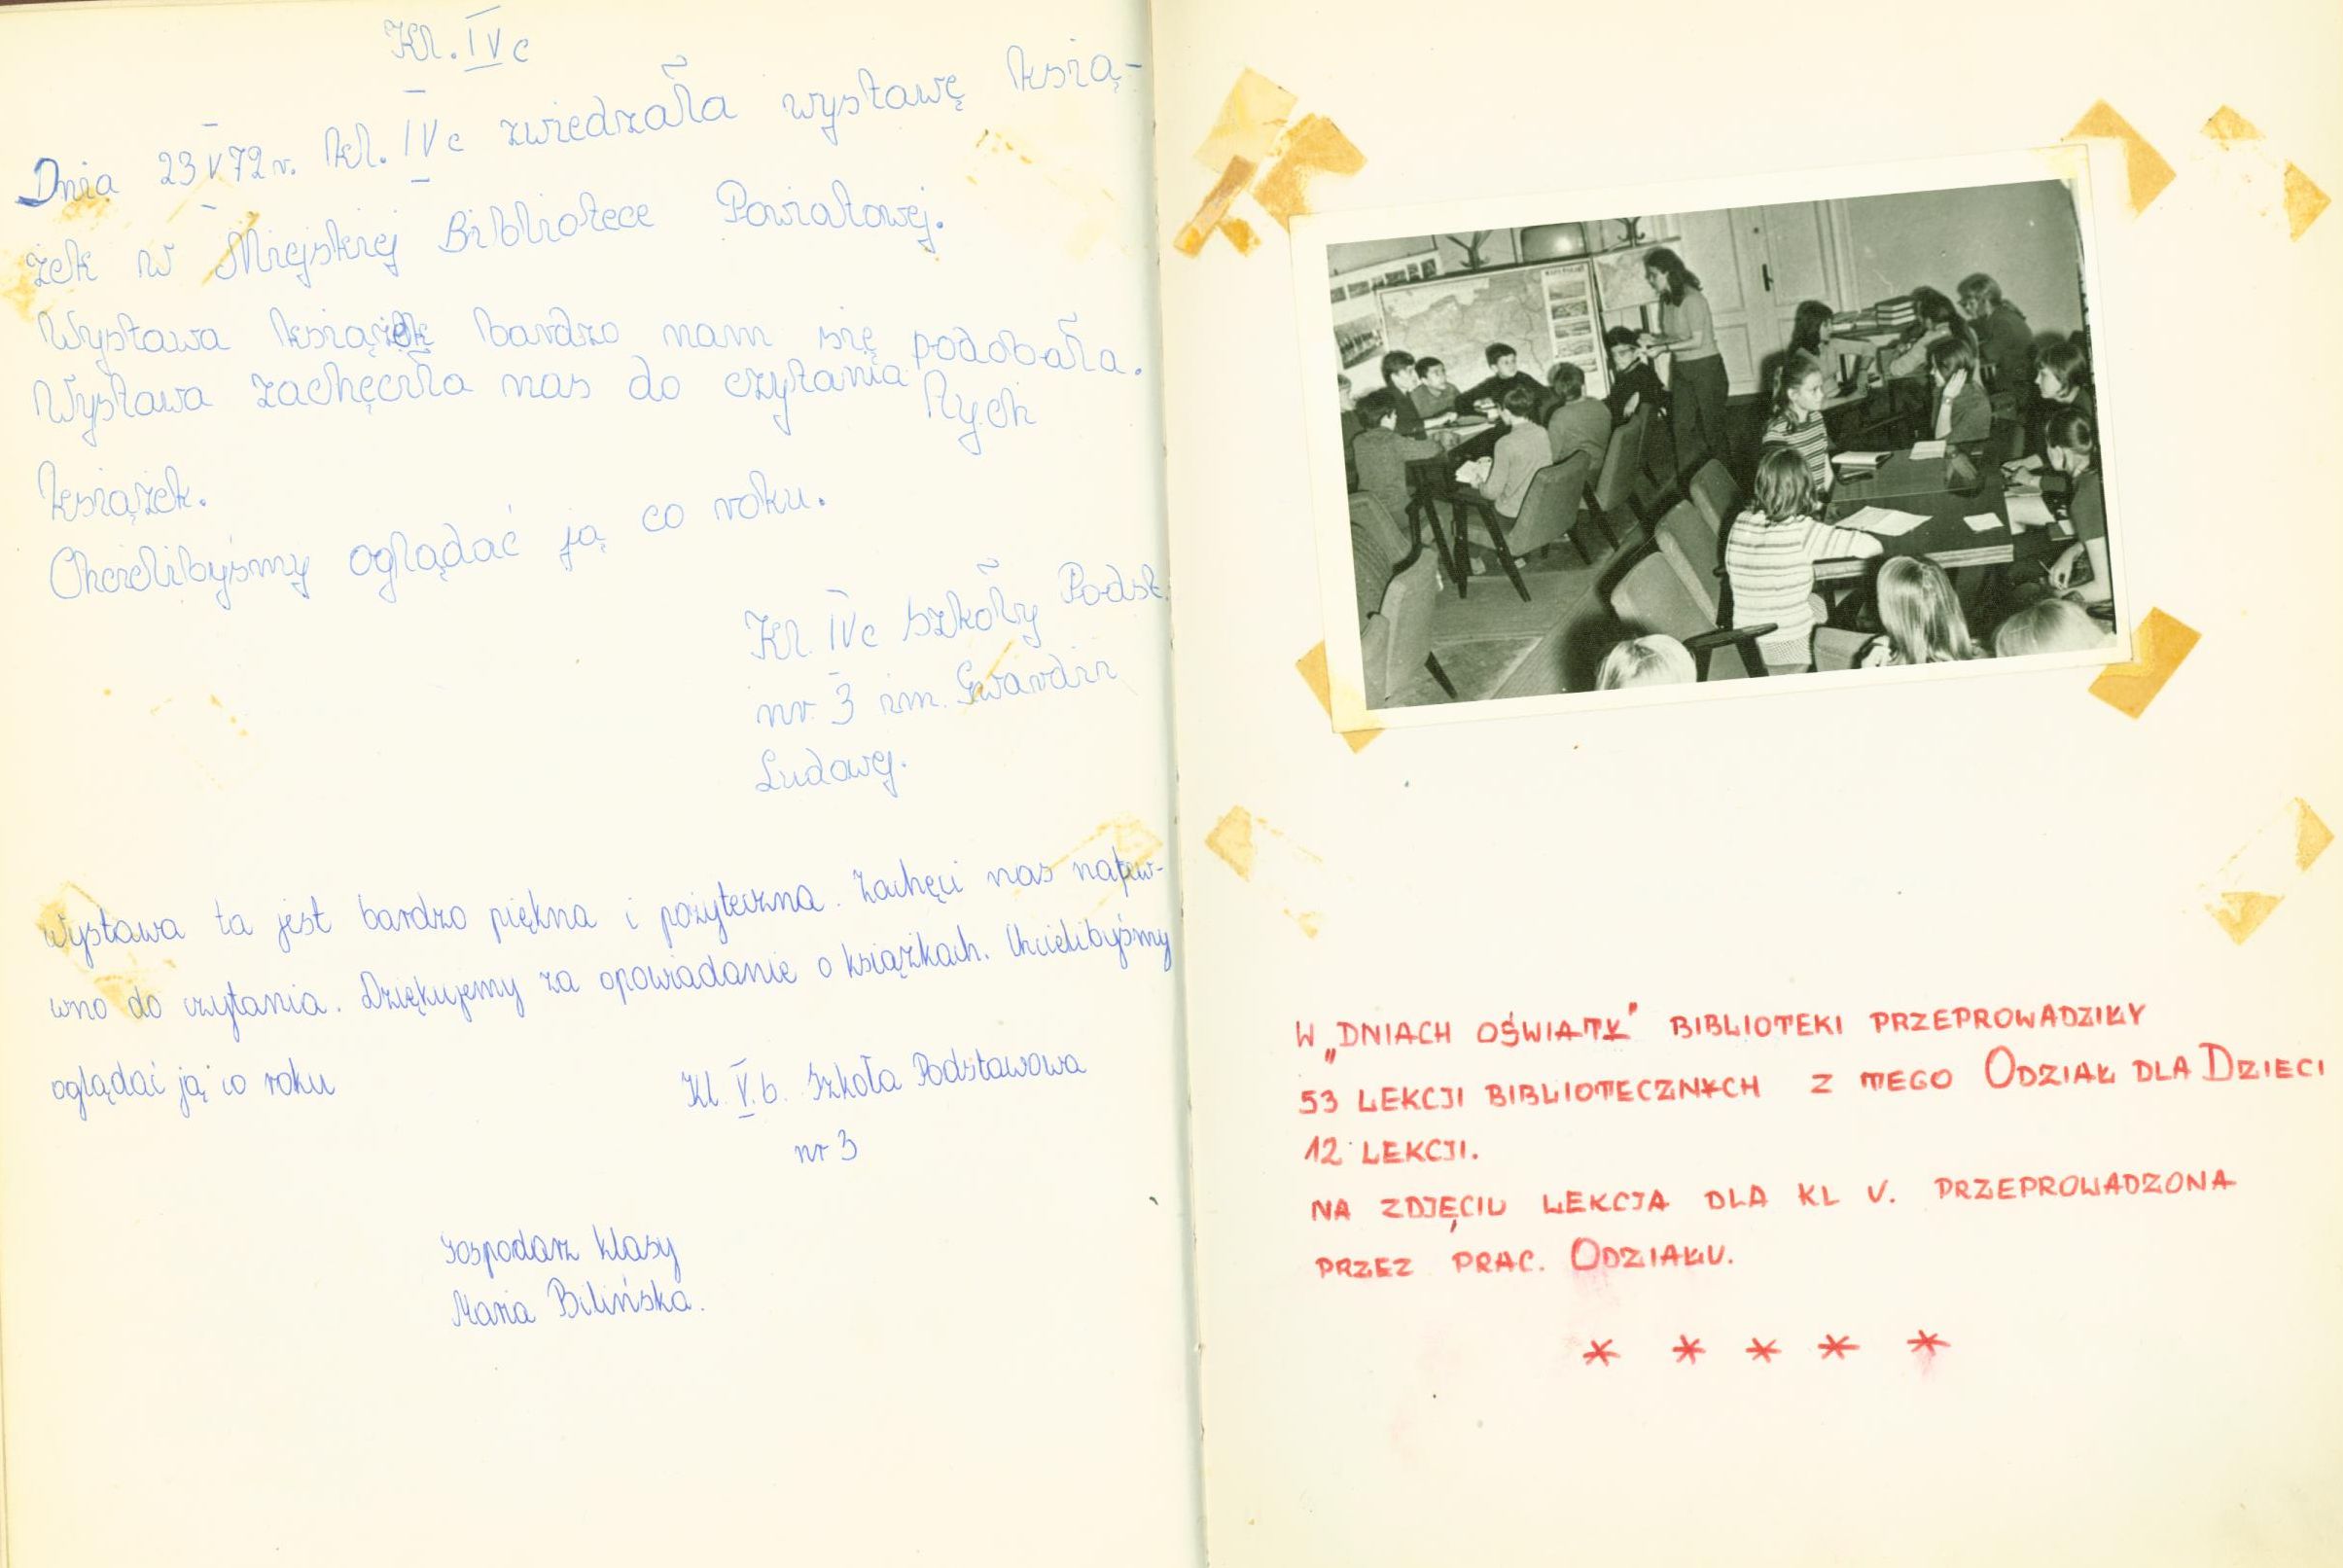 Kl. IV c
Dnia 23 V 72 r. kl. IV c zwiedzała wystawę ksią-
żek w Miejskiej Bibliotece Powiatowej.
Wystawa książek bardzo nam się podobała.
Wystawa zachęciła nas do czytania tych
książek.
Chcielibyśmy oglądać ją co roku.
Kl. IV c Szkoły Podst.
nr. 3 im. Gwardii
Ludowej.
Wystawa ta jest bardzo piękna i pożyteczna. Zachęci nas napew-
wno do czytania. Dziękujemy za opowiadanie o książkach. Chcielibyśmy
oglądać ją co roku
Kl. V. b. Szkoła Podstawowa
nr 3
Gospodarz klasy
Maria Bilińska.
W „DNIACH OŚWIATY" BIBLIOTEKI PRZEPROWADZIŁY
53 LEKCJI BIBLIOTECZNYCH Z TEGO ODZIAŁ DLA DZIECI
12 LEKCJI.
NA ZDJĘCIU LEKCJA DLA KL V. PRZEPROWADZONA
PRZEZ PRAC. ODZIAŁU.
* * * * *